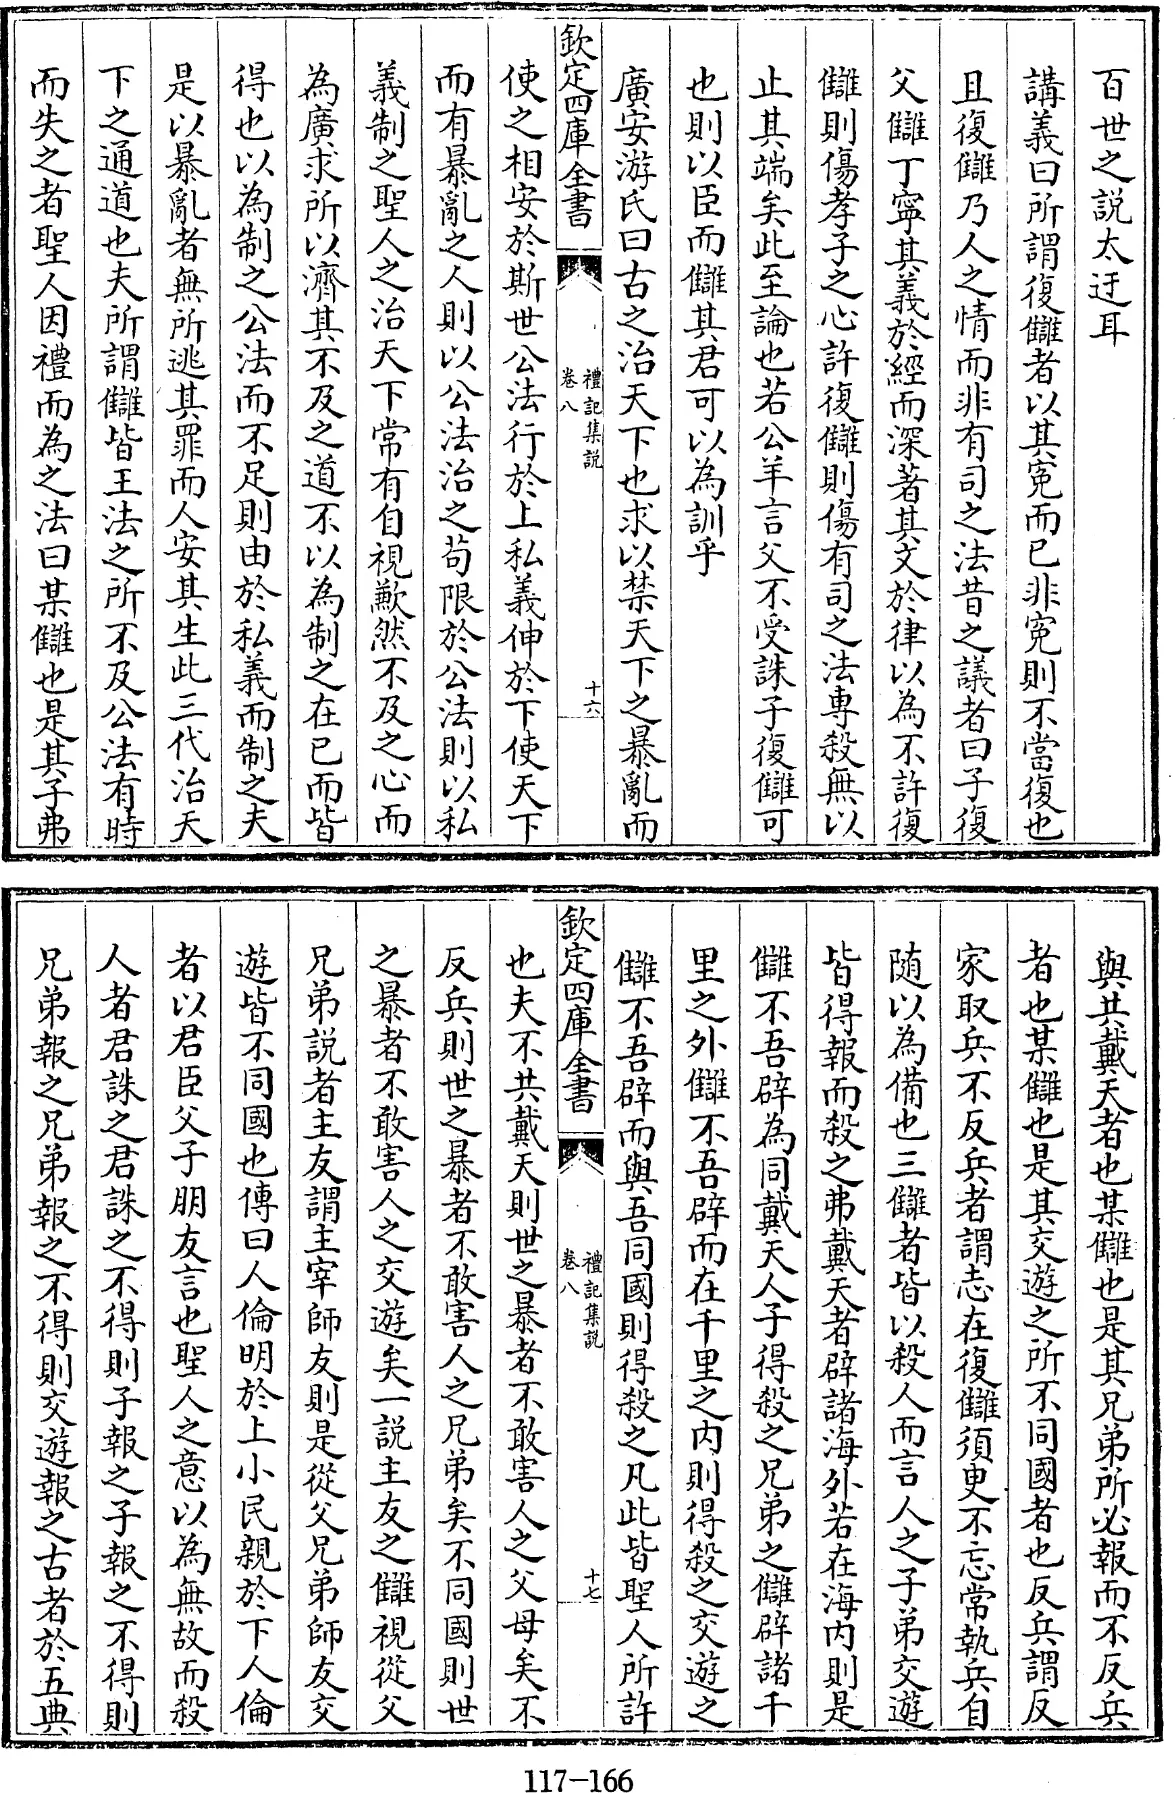 百世之説太迂耳
講義曰所謂復讎者以其寃而已非寃則不當復也
且復讎乃人之情而非有司之法昔之議者曰子復
父讎丁寧其義於經而深著其文於律以為不許復
讎則傷孝子之心許復讎則傷有司之法專殺無以
止其端矣此至論也若公羊言父不受誅子復讎可
也則以臣而讎其君可以為訓乎
廣安游氏曰古之治天下也求以禁天下之暴亂而
欽定四庫全書
禮記集説
卷八
十六
使之相安於斯世公法行於上私義伸於下使天下
而有暴亂之人則以公法治之苟限於公法則以私
義制之聖人之治天下常有自視歉然不及之心而
為廣求所以濟其不及之道不以為制之在已而皆
得也以為制之公法而不足則由於私義而制之夫
是以暴亂者無所逃其罪而人安其生此三代治天
下之通道也夫所謂讎皆王法之所不及公法有時
而失之者聖人因禮而為之法曰某讎也是其子弗
與共戴天者也某讎也是其兄弟所必報而不反兵
者也某讎也是其交遊之所不同國者也反兵謂反
家取兵不反兵者謂志在復讎須臾不忘常執兵自
随以為備也三讎者皆以殺人而言人之子弟交遊
皆得報而殺之弗戴天者辟諸海外若在海内則是
讎不吾辟為同戴天人子得殺之兄弟之讎辟諸千
里之外讎不吾辟而在千里之内則得殺之交遊之
讎不吾辟而與吾同國則得殺之凡此皆聖人所許
欽定四庫全書
禮記集説
卷八
十七
也夫不共戴天則世之暴者不敢害人之父母矣不
反兵則世之暴者不敢害人之兄弟矣不同國則世
之暴者不敢害人之交遊矣一説主友之讎視從父
兄弟説者主友謂主宰師友則是從父兄弟師友交
遊皆不同國也傳曰人倫明於上小民親於下人倫
者以君臣父子朋友言也聖人之意以為無故而殺
人者君誅之君誅之不得則子報之子報之不得則
兄弟報之兄弟報之不得則交遊報之古者於五典
117-166